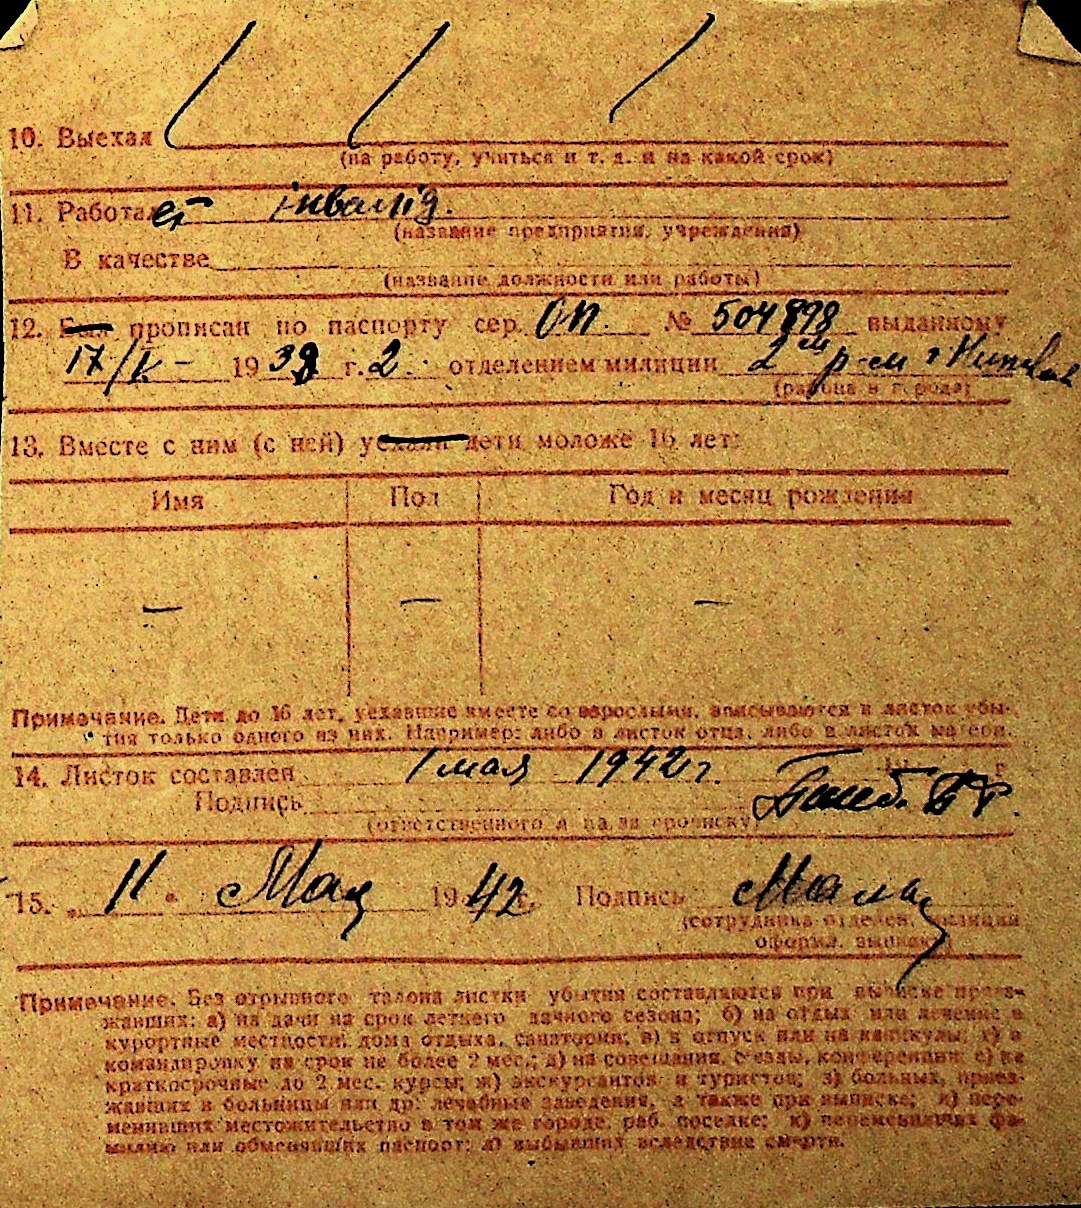 10. Выехал
(на работу, учиться и т. д. и на какой срок)
11. Работает інвалід.
(название предприятия, учреждения)
В качестве
(название должности или работы)
12. Был прописан по паспорту сер. ОП. № 504898 выданному
IX/к - 1939 г. 2. отделением милиции 2
(района и города)
13. Вместе с ним (с ней) уехали дети моложе 16 лет:
Имя Пол Год и месяц рождения
— — —
Примечание. Дети до 16 лет, уехавшие вместе со взрослыми, вписываются в листок убы-
тия только одного из них. Например: либо в листок отца, либо в листок матери.
14. Листок составлен 1 мая 1942 г. г.
Подпись
(ответственного л-ца за прописку)
15. „ 11 “ Мая 1942 г. Подпись
(сотрудника отделен. милиции
оформ. выписку)
Примечание. Без отрывного талона листки убытия составляются при выписке прое-
жавших: а) на дачи на срок летнего дачного сезона; б) на отдых или лечение в
курортные местности, дома отдыха, санатории; в) в отпуск или на каникулы; г) в
командировку на срок не более 2 мес.; д) на совещания, съезды, конференции; е) на
краткосрочные до 2 мес. курсы; ж) экскурсантов и туристов; з) больных, приез-
жавших в больницы или др. лечебные заведения, а также при выписке; и) пере-
менивших местожительство в том же городе, раб. поселке; к) переменивших фа-
милию или обменявших паспорт; л) выбывших вследствие смерти.